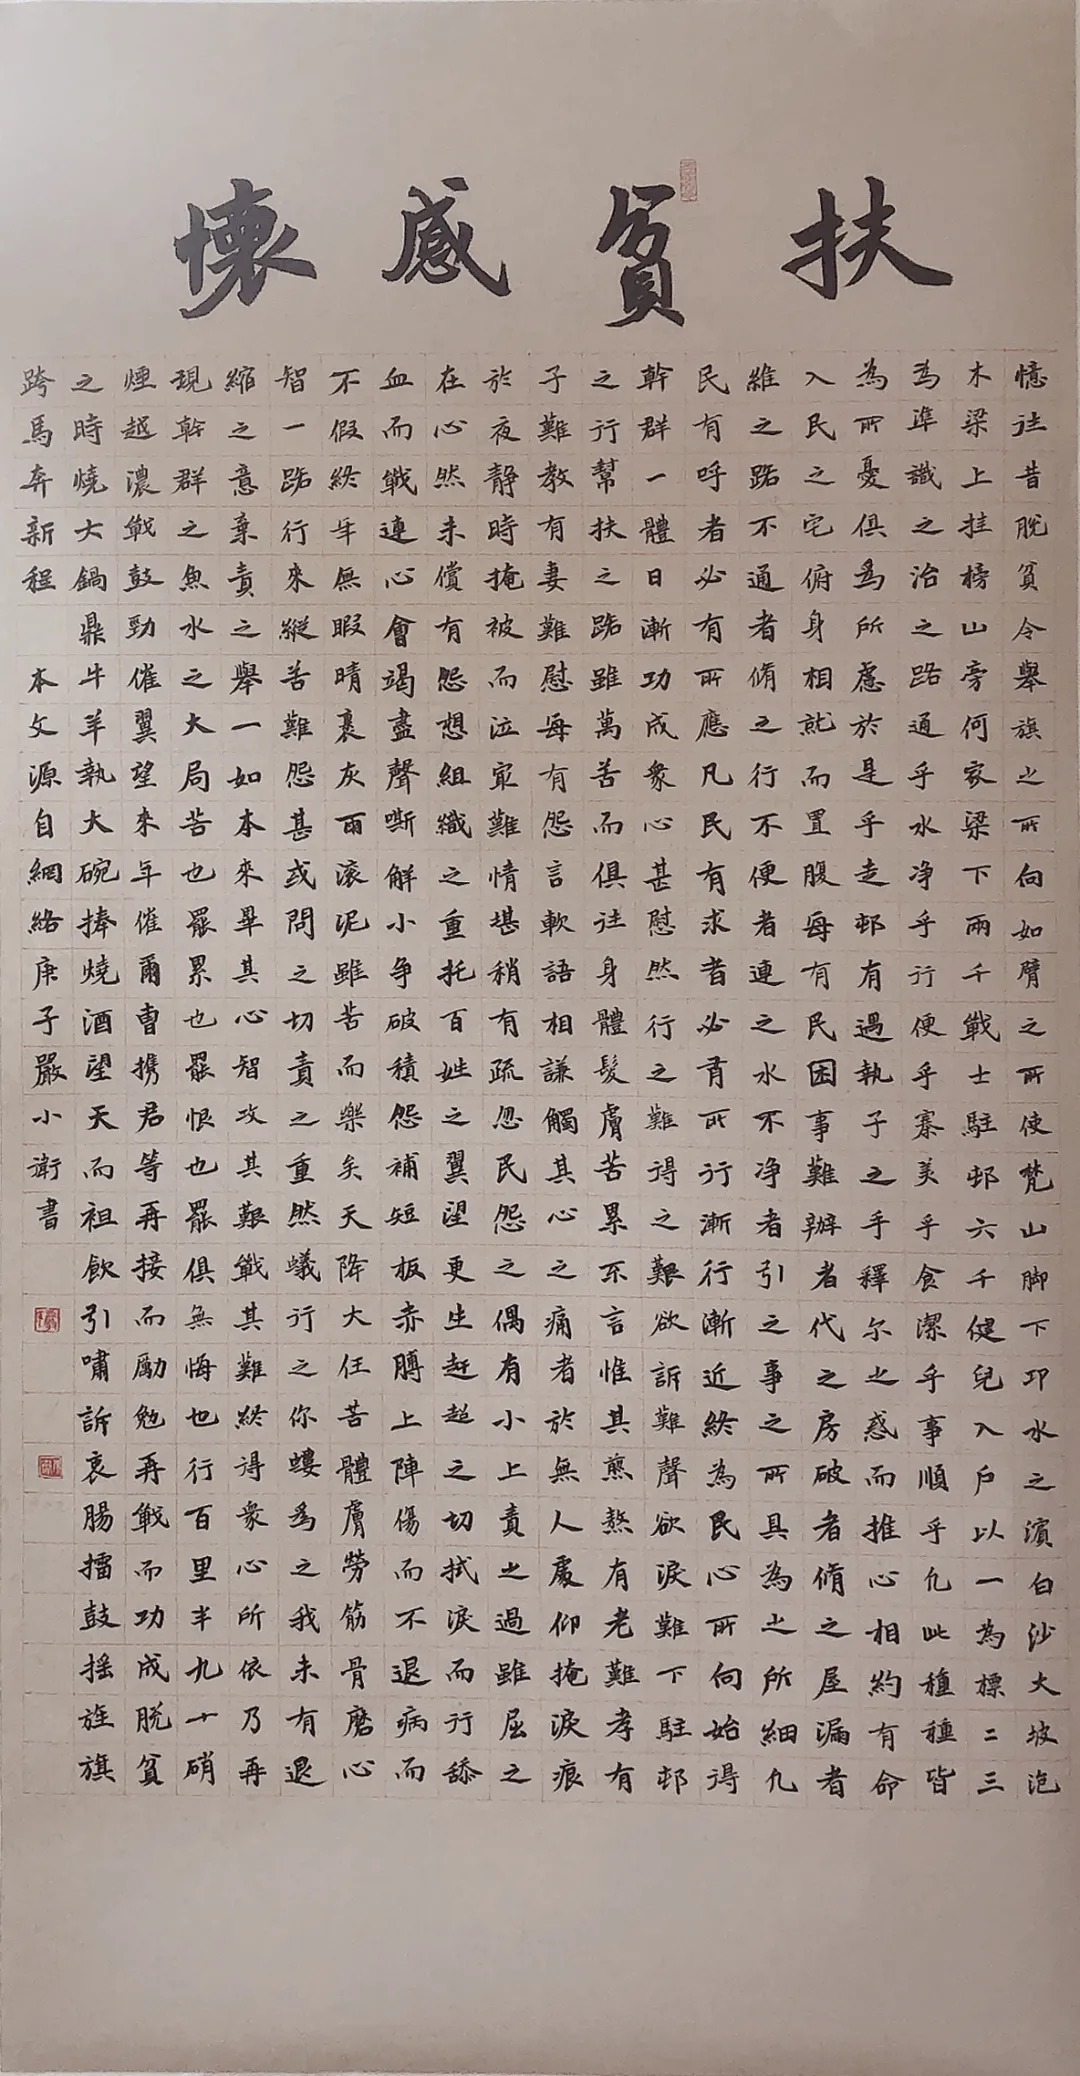 扶貧感懷
憶往昔脫貧令舉旗之所向如臂之所使梵山脚下邛水之濱白沙大坡泡
木梁上挂榜山旁何家梁下兩千戰士駐邨六千健兒入户以一為標二三
為準識之治之路通乎水净乎行便乎寨美乎食潔乎事順乎凢此種種皆
為所憂俱為所慮於是乎走邨有過執子之手釋尔之惑而推心相約有命
入民之宅俯身相就而置腹每有民困事難辦者代之房破者脩之屋漏者
維之路不通者脩之行不便者連之水不净者引之事之所具為之所細凢
民有呼者必有所應凡民有求者必有所行漸行漸近終為民心所向始得
幹群一體日漸功成衆心甚慰然行之難得之艱欲訴難聲欲淚難下駐邨
之行幫扶之路雖萬苦而俱往身體髮膚苦累不言惟其煎熬有老難孝有
子難教有妻難慰每有怨言軟語相謙觸其心之痛者於無人處仰掩淚痕
於夜静時掩被而泣冣難情堪稍有疏忽民怨之偶有小上責之過雖屈之
在心然未償有怨想組織之重托百姓之翼望更生赶超之切拭淚而行舔
血而戰連心會竭盡聲嘶解小争破積怨補短板赤膊上陣傷而不退病而
不假終年無暇晴裹灰雨滚泥雖苦而樂矣天降大任苦體膚勞筋骨磨心
智一路行來縱苦難怨甚或問之切責之重然蟻行之你螻為之我未有退
縮之意棄責之舉一如本來畢其心智攻其艱戰其難終得衆心所依乃再
現幹群之魚水之大局苦也罷累也罷恨也罷俱無悔也行百里半九十硝
煙越濃戰鼓勁催翼望來年催爾曹携君等再接而勵勉再戰而功成脫貧
之時燒大鍋鼎牛羊執大碗捧燒酒望天而袒飲引嘯訴衷腸擂鼓摇旌旗
跨馬奔新程 本文源自網絡庚子嚴小衛書